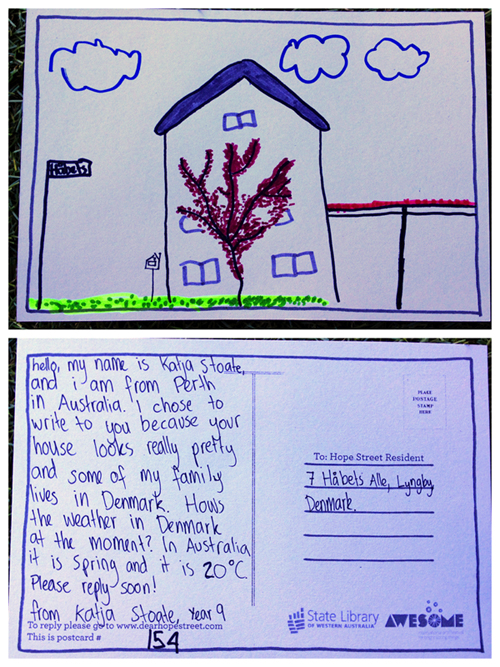 Håbets
hello, my name is Katja Stoate,
and i am from Perth
in Australia. I chose to
write to you because your
house looks really pretty
and some of my family
lives in Denmark. Hows
the weather in Denmark
at the moment? In Australia
it is Spring and it is 20°C.
Please reply soon!
from Katja Stoate, Year 9
To reply please go to www.dearhopestreet.com
This is postcard #
154
PLACE
POSTAGE
STAMP
HERE
To: Hope Street Resident
7 Håbets Alle, Lyngby
Denmark.
State Library
OF WESTERN AUSTRALIA
AWESOME